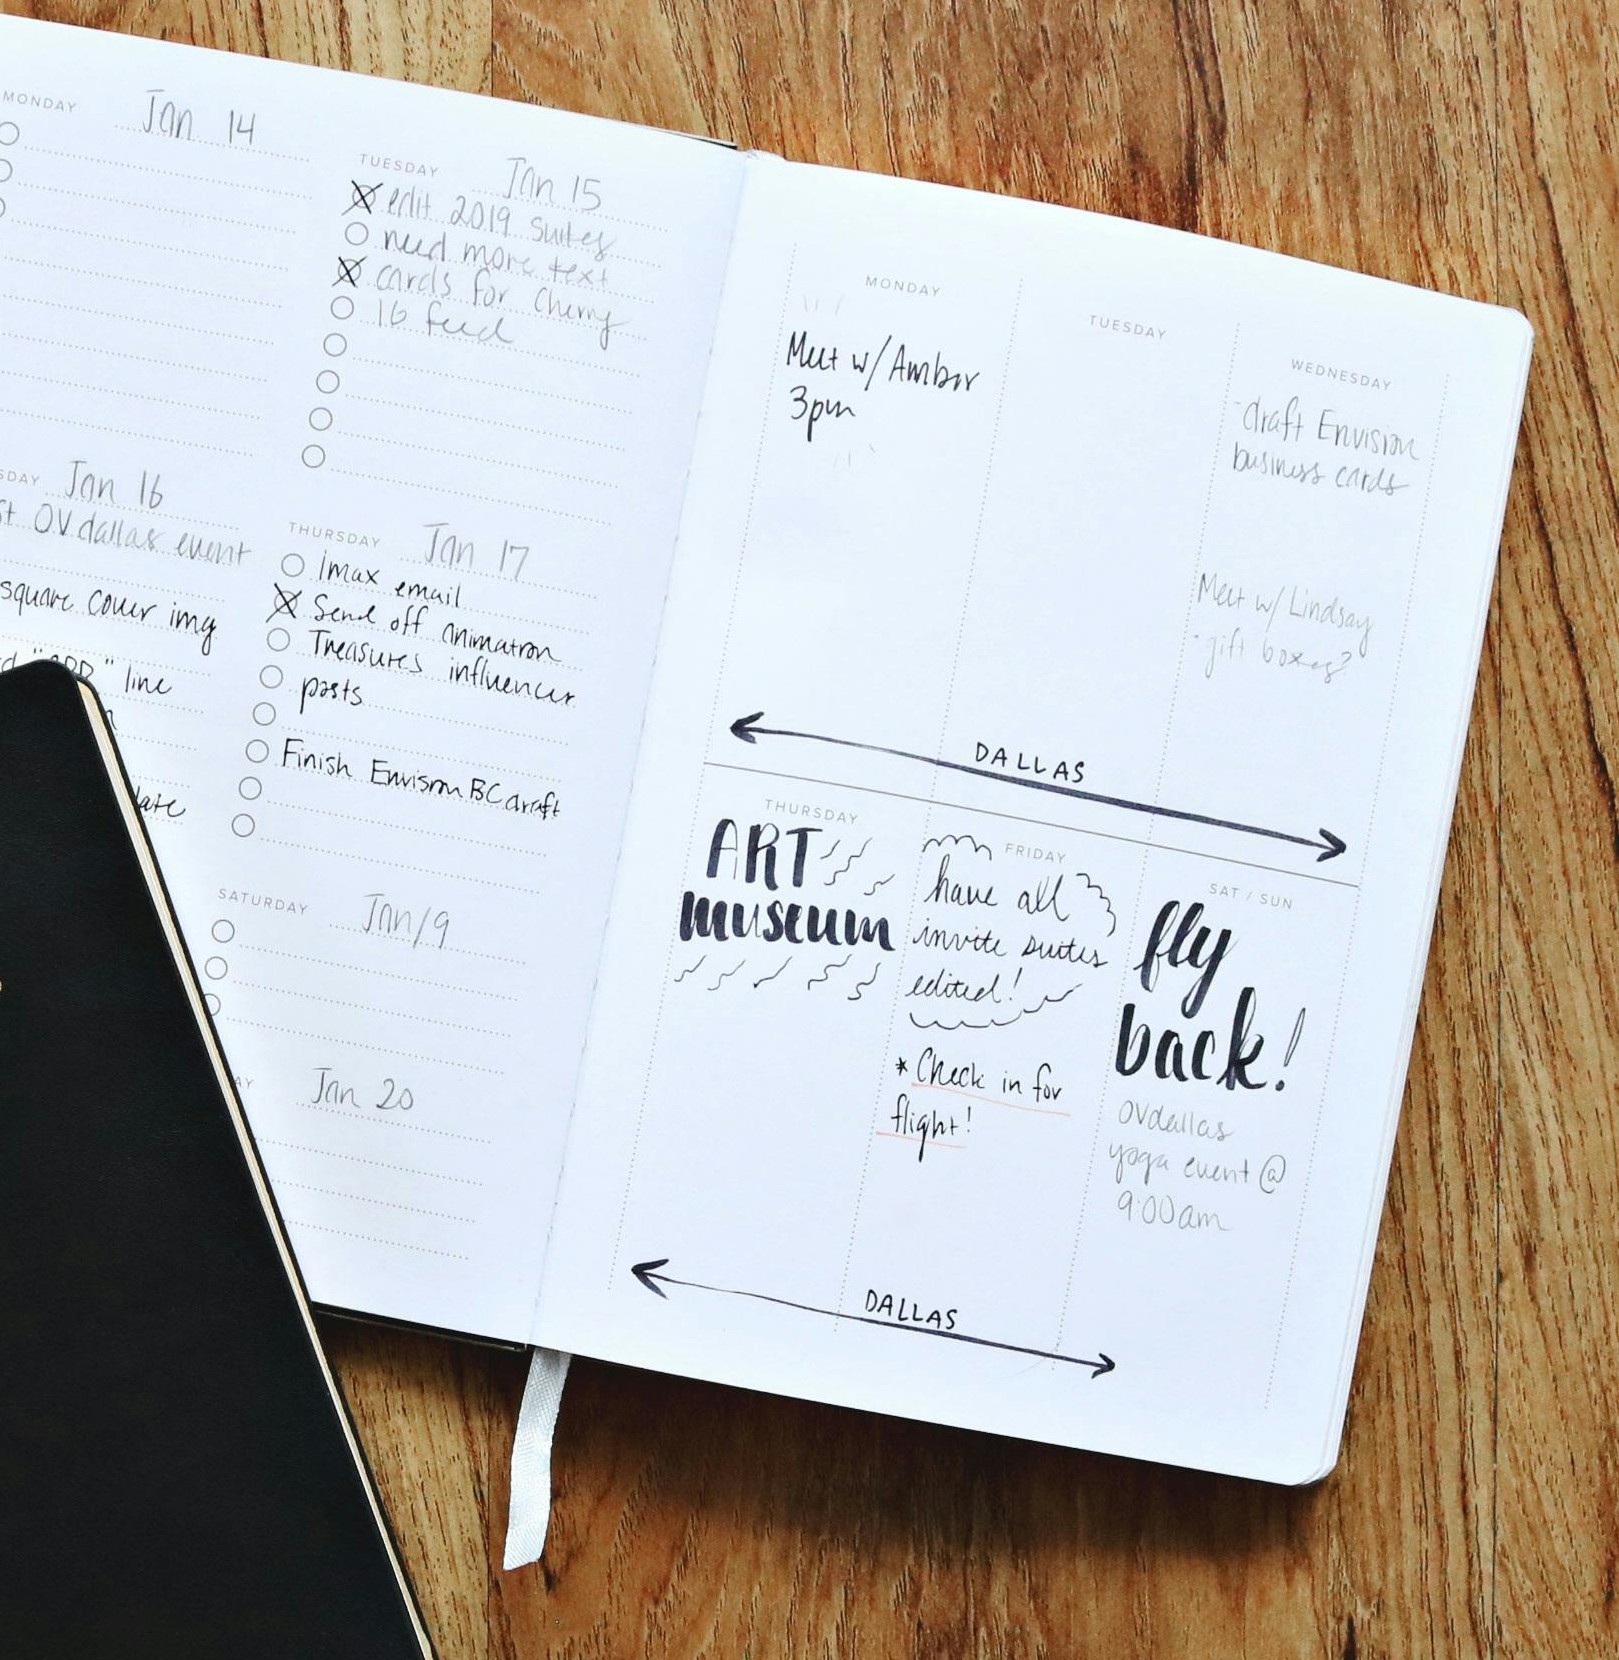 MONDAY Jan 14
TUESDAY Jan 15
edit 2019 suites
need more text
cards for cherry
16 feed
SDAY Jan 16
st OVdallas event
square cover img
line
late
THURSDAY Jan 17
imax email
Send off animatron
Treasures influencer
posts
Finish Envision BC draft
SATURDAY Jan 19
AY Jan 20
MONDAY
Meet w/ Amber
3pm
TUESDAY
WEDNESDAY
draft Envision
business cards
Meet w/ Lindsay
gift boxes?
DALLAS
THURSDAY
ART
museum
FRIDAY
have all
invite suites
edited!
* Check in for
flight!
SAT / SUN
fly
back!
OVdallas
yoga event @
9:00am
DALLAS